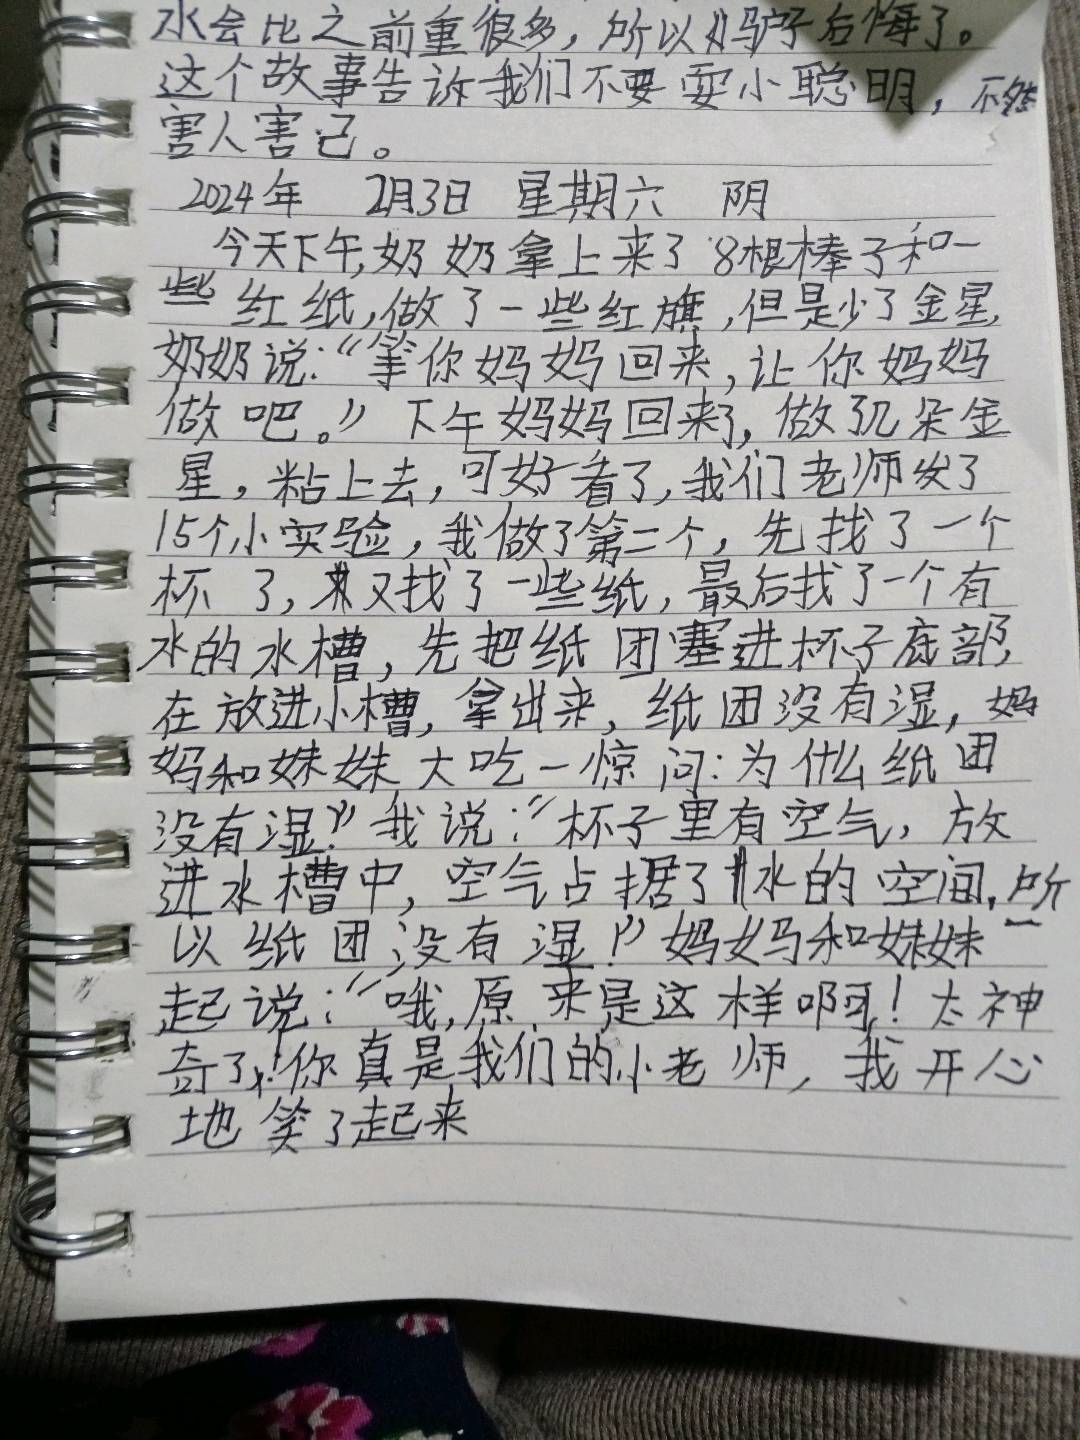 水会比之前重很多，所以驴子后悔了。
这个故事告诉我们不要耍小聪明，不然
害人害己。
2024年 2月3日 星期六 阴
今天下午,奶奶拿上来了8根棒子和一
些红纸,做了一些红旗,但是少了金星,
奶奶说:“等你妈妈回来,让你妈妈
做吧。”下午妈妈回来了,做了几朵金
星,粘上去,可好看了,我们老师发了
15个小实验,我做了第二个,先找了一个
杯了,又找了一些纸,最后找了一个有
水的水槽,先把纸团塞进杯子底部,
在放进小槽,拿出来,纸团没有湿,妈
妈和妹妹大吃一惊问:为什么纸团
没有湿?”我说:“杯子里有空气,放
进水槽中,空气占据了水的空间,所
以纸团没有湿!”妈妈和妹妹一
起说:“哦,原来是这样啊!太神
奇了!你真是我们的小老师,我开心
地笑了起来